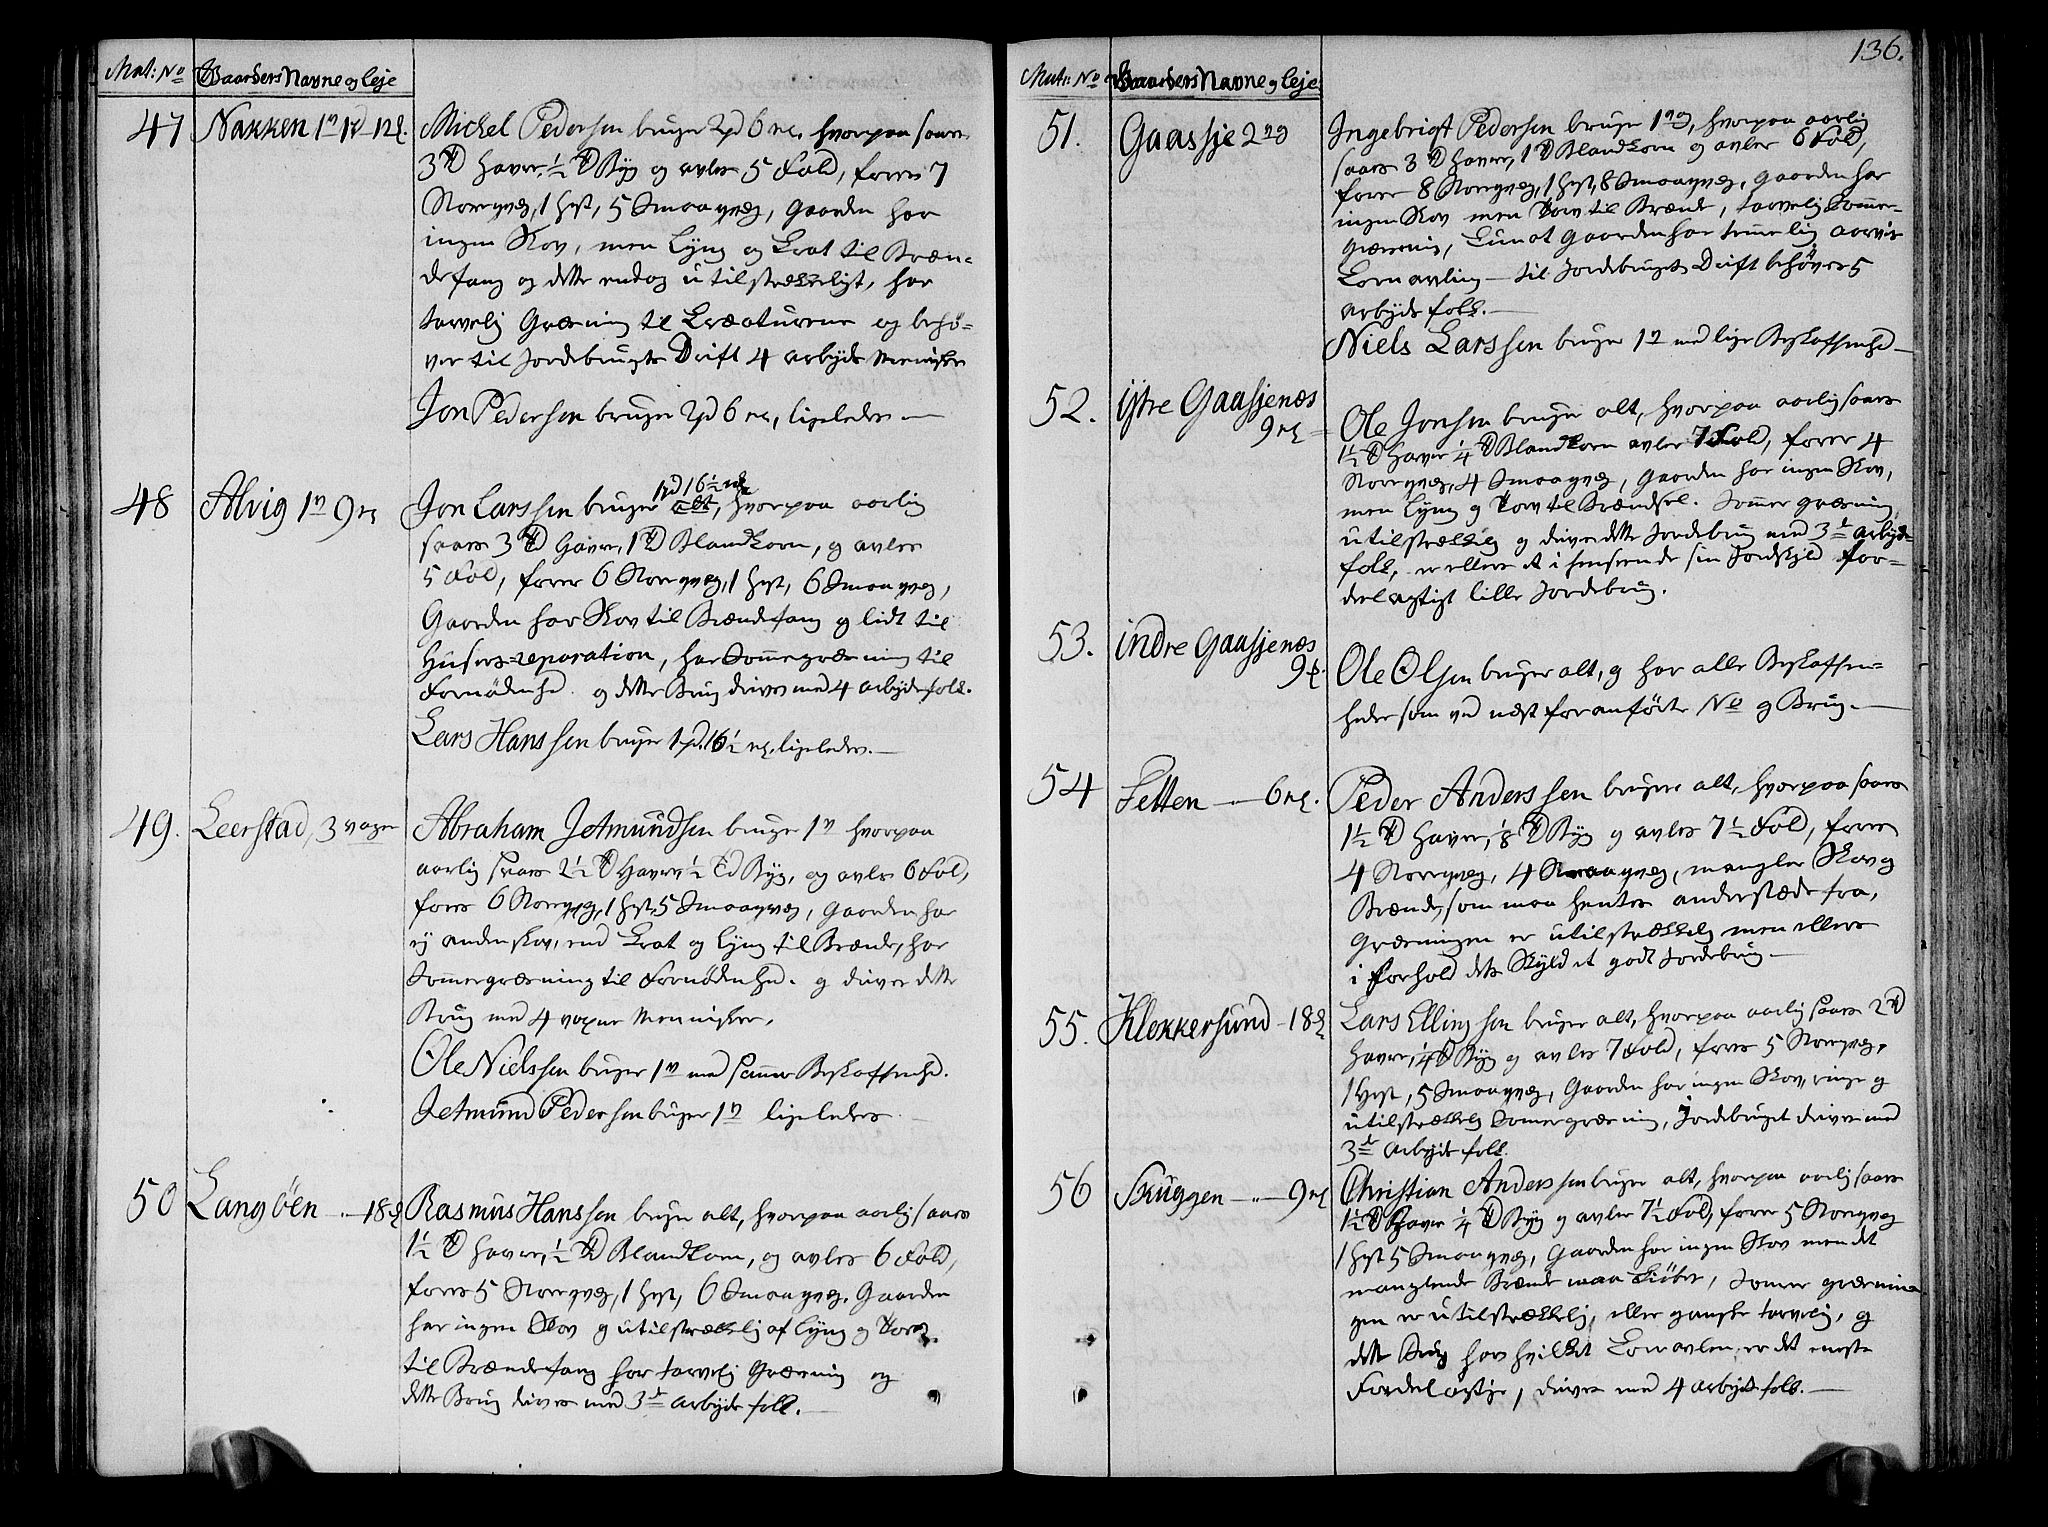 Mat: No Gaardens Navne og Leje
47 Nakken 1 v 1 pd 12 mk.
Michel Pedersen bruger 2 pd 6 mk. hvorpaa saaes
3 Td Havre, ½ Td Byg og avles 5 Fold, fores 7
Storqvæg, 1 Hest, 5 Smaaqvæg, Gaarden har
ingen Skov, men Lyng og Krat til Bræn-
defang og dette endog utilstrækkeligt, har
tarvelig Græsning til Kræaturene og behø-
ver til Jordebrugets Drift 4 arbejds Mennisker
Jon Pedersen bruger 2 pd 6 mk, ligeledes —
48 Alvig 1 v 9 mk
Jon Larssen bruger alt, hvorpaa aarlig
1 pd 16½ mk
saaes 3 Td Havre, 1 Td Blandkorn, og avles
5 Fold, fores 6 Storqvæg, 1 Hest, 6 Smaaqvæg,
Gaarden har Skov til Brændefang og lidt til
Husers reparation, har Sommergræsning til
Fornødenhed. og dette Brug drives med 4 arbejdsfolk.
Lars Hanssen bruger 1 pd. 16½ mk. ligeledes. —
49. Leerstad, 3 voger
Abraham Jetmundsen bruger 1 v hvorpaa
aarlig saaes 2½ Td Havre, ½ Td Byg, og avles 6 Fold,
fores 6 Storqvæg, 1 Hest, 5 Smaaqvæg, Gaarden har
ej anden Skov, end Krat og Lyng til Brænde, har
Sommergræsning til Fornødenhed. og driver dette
Brug med 4 voxne Mennisker.
Ole Nielssen bruger 1 v med samme Beskaffenhed.
Jetmund Pedersen bruger 1 v ligeledes —
50 Langøen — 18 mk
Rasmus Hanssen bruger alt, hvorpaa aarlig saaes
1½ Td Havre, ½ Td Blandkorn, og avles 6 Fold,
fores 5 Storqvæg, 1 Hest, 6 Smaaqvæg. Gaarden
har ingen Skov og utilstrækkelig af Lyng og Torv
til Brændefang har tarvelig Græsning og
dette Brug drives med 3de arbejdsfolk. —
136.
Matr: No Gaardens Navne og Leje
51. Gaassje 2 vog
Ingebrigt Pedersen bruger 1 vog, hvorpaa aarlig
saaes 3 Td Havre, 1 Td Blandkorn og avles 6 Fold,
fores 8 Storqvæg, 1 Hest, 8 Smaaqvæg, Gaarden har
ingen Skov men Torv til Brænde, tarvelig Sommer-
græsning, kun at Gaarden har temmelig aarvis
Kornavling — til Jordebrugets Drift behøves 5
arbejdsfolk. —
Niels Larssen bruger 1 v med lige Beskaffenhed —
52. ijtre Gaasjenæs
9 mk
Ole Jonsen bruger alt, hvorpaa aarlig saaes
1½ Td Havre ¼ Td Blandkorn avles 7 Fold, fores 4
Storqvæg, 4 Smaaqvæg, Gaarden har ingen Skov,
men Lyng og Torv til Brændsel. Sommergræsning
utilstrækkelig og drives dette Jordebrug med 3de arbejds-
folk, er ellers et i henseende sin Jordskyld for-
delagtigt lille Jordebrug.
53. indre Gaasjenæs
9 mk.
Ole Olsen bruger alt, og har alle Beskaffen-
heder som ved næst foranførte No og Brug. —
54 Tetten — 6 mk.
Peder Anderssen bruger alt, hvorpaa saaes
1½ Td Havre, ⅛ Td Byg og avles 7½ Fold, fores
4 Storqvæg, 4 Smaaqvæg, mangler Skov og
Brænde, som maa hentes anderstæds fra,
Græsningen er utilstrækkelig men ellers
i Forhold dets Skyld et godt Jordebrug. —
55. Klokkersund — 18 mk
Lars Ellingsen bruger alt, hvorpaa aarlig saaes 2 Td
Havre, ¼ Td Byg og avles 7 Fold, fores 5 Storqvæg,
1 Hest, 5 Smaaqvæg, Gaarden har ingen Skov, ringe og
utilstrækkelig Sommergræsning, Jordebruget drives med
3de arbejdsfolk.
56 Skuggen — 9 mk
Christian Anderssen bruger alt, hvorpaa aarlig saaes
1½ Td Havre ¼ Td Byg og avles 7½ Fold, fores 5 Storqvæg
1 Hest 5 Smaaqvæg, Gaarden har ingen Skov men det
manglende Brænde maa kiøbes, Sommer græsnin-
gen er utilstrækkelig, eller ganske tarvelig, og
dette Brug hvis Kornavlen er det eneste
Fordelagtige, drives med 4 arbejdsfolk. —